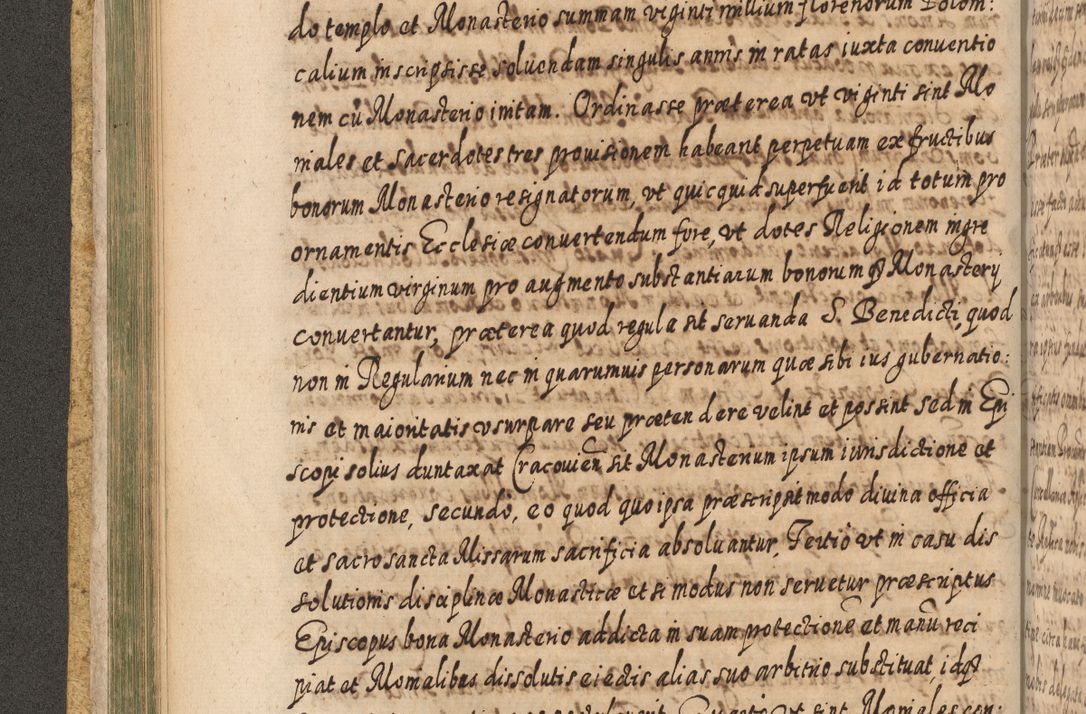 do templo et Monasterio summam viginti millium florenorum Polom:
calium inscripsisse soluendam singulis annis in ratas iuxta conventio
nem cũ Monasterio initam. Ordinasse præterea vt viginti sint Mo
niales et sacerdotes tres provisionem habeant perpetuam ex fructibus
bonorum Monasterio resignatorum, vt quicquid superfuerit id totum pro
ornamentis Ecclesiæ convertendum fore, vt dotes Religionem ingre
dientium virginum pro augmento substantiarum bonorumq3 Monasterij
convertantur, præterea quod regula sit servanda S. Benedicti, quod
non in Regularium nec in quarumuis personarum quæ sibi ius gubernatio:
nis et maioritatis vsurpare seu prætendere velint et possint sed in Epi
scopi solius duntaxat Cracovieñ sit Monasterium ipsum iurisdictione et
protectione, secundò, eo quod quo ipsa præscripsit modo divina officia
et sacrosancta Missarum sacrificia absoluantur, Tertiò vt in casu dis
solutionis disciplinæ Monasticæ et si modus non seruetur præscriptus
Episcopus bona Monasterio addicta in suam protectionẽ et manũ reci
piat et Monialibus dissolutis eiectis alias suo arbitrio substituat, idq3